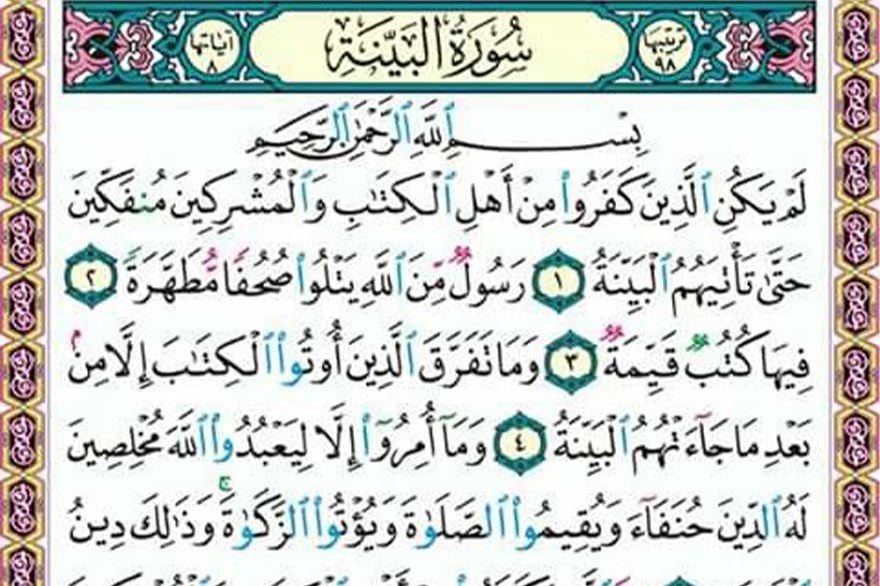 ترتيبها ٩٨ سُورَةُ البَيِّنَةِ آياتها ٨
بِسْمِ ٱللَّهِ ٱلرَّحْمَٰنِ ٱلرَّحِيمِ
لَمْ يَكُنِ ٱلَّذِينَ كَفَرُوا۟ مِنْ أَهْلِ ٱلْكِتَٰبِ وَٱلْمُشْرِكِينَ مُنفَكِّينَ
حَتَّىٰ تَأْتِيَهُمُ ٱلْبَيِّنَةُ ١ رَسُولٌ مِّنَ ٱللَّهِ يَتْلُوا۟ صُحُفًا مُّطَهَّرَةً ٢
فِيهَا كُتُبٌ قَيِّمَةٌ ٣ وَمَا تَفَرَّقَ ٱلَّذِينَ أُوتُوا۟ ٱلْكِتَٰبَ إِلَّا مِنۢ
بَعْدِ مَا جَآءَتْهُمُ ٱلْبَيِّنَةُ ٤ وَمَآ أُمِرُوٓا۟ إِلَّا لِيَعْبُدُوا۟ ٱللَّهَ مُخْلِصِينَ
لَهُ ٱلدِّينَ حُنَفَآءَ وَيُقِيمُوا۟ ٱلصَّلَوٰةَ وَيُؤْتُوا۟ ٱلزَّكَوٰةَ ۚ وَذَٰلِكَ دِينُ